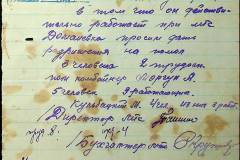 в том что он действи-
тельно работает при мтс
Доманевка просим дать
разрешения на помол
3 человека 2 трудосп
пом комбайнер Моргун А.
5 человек 3 работающ.
М. 4 чел. из них 3 раб.
Директор мтс
Бухгалтер мтс